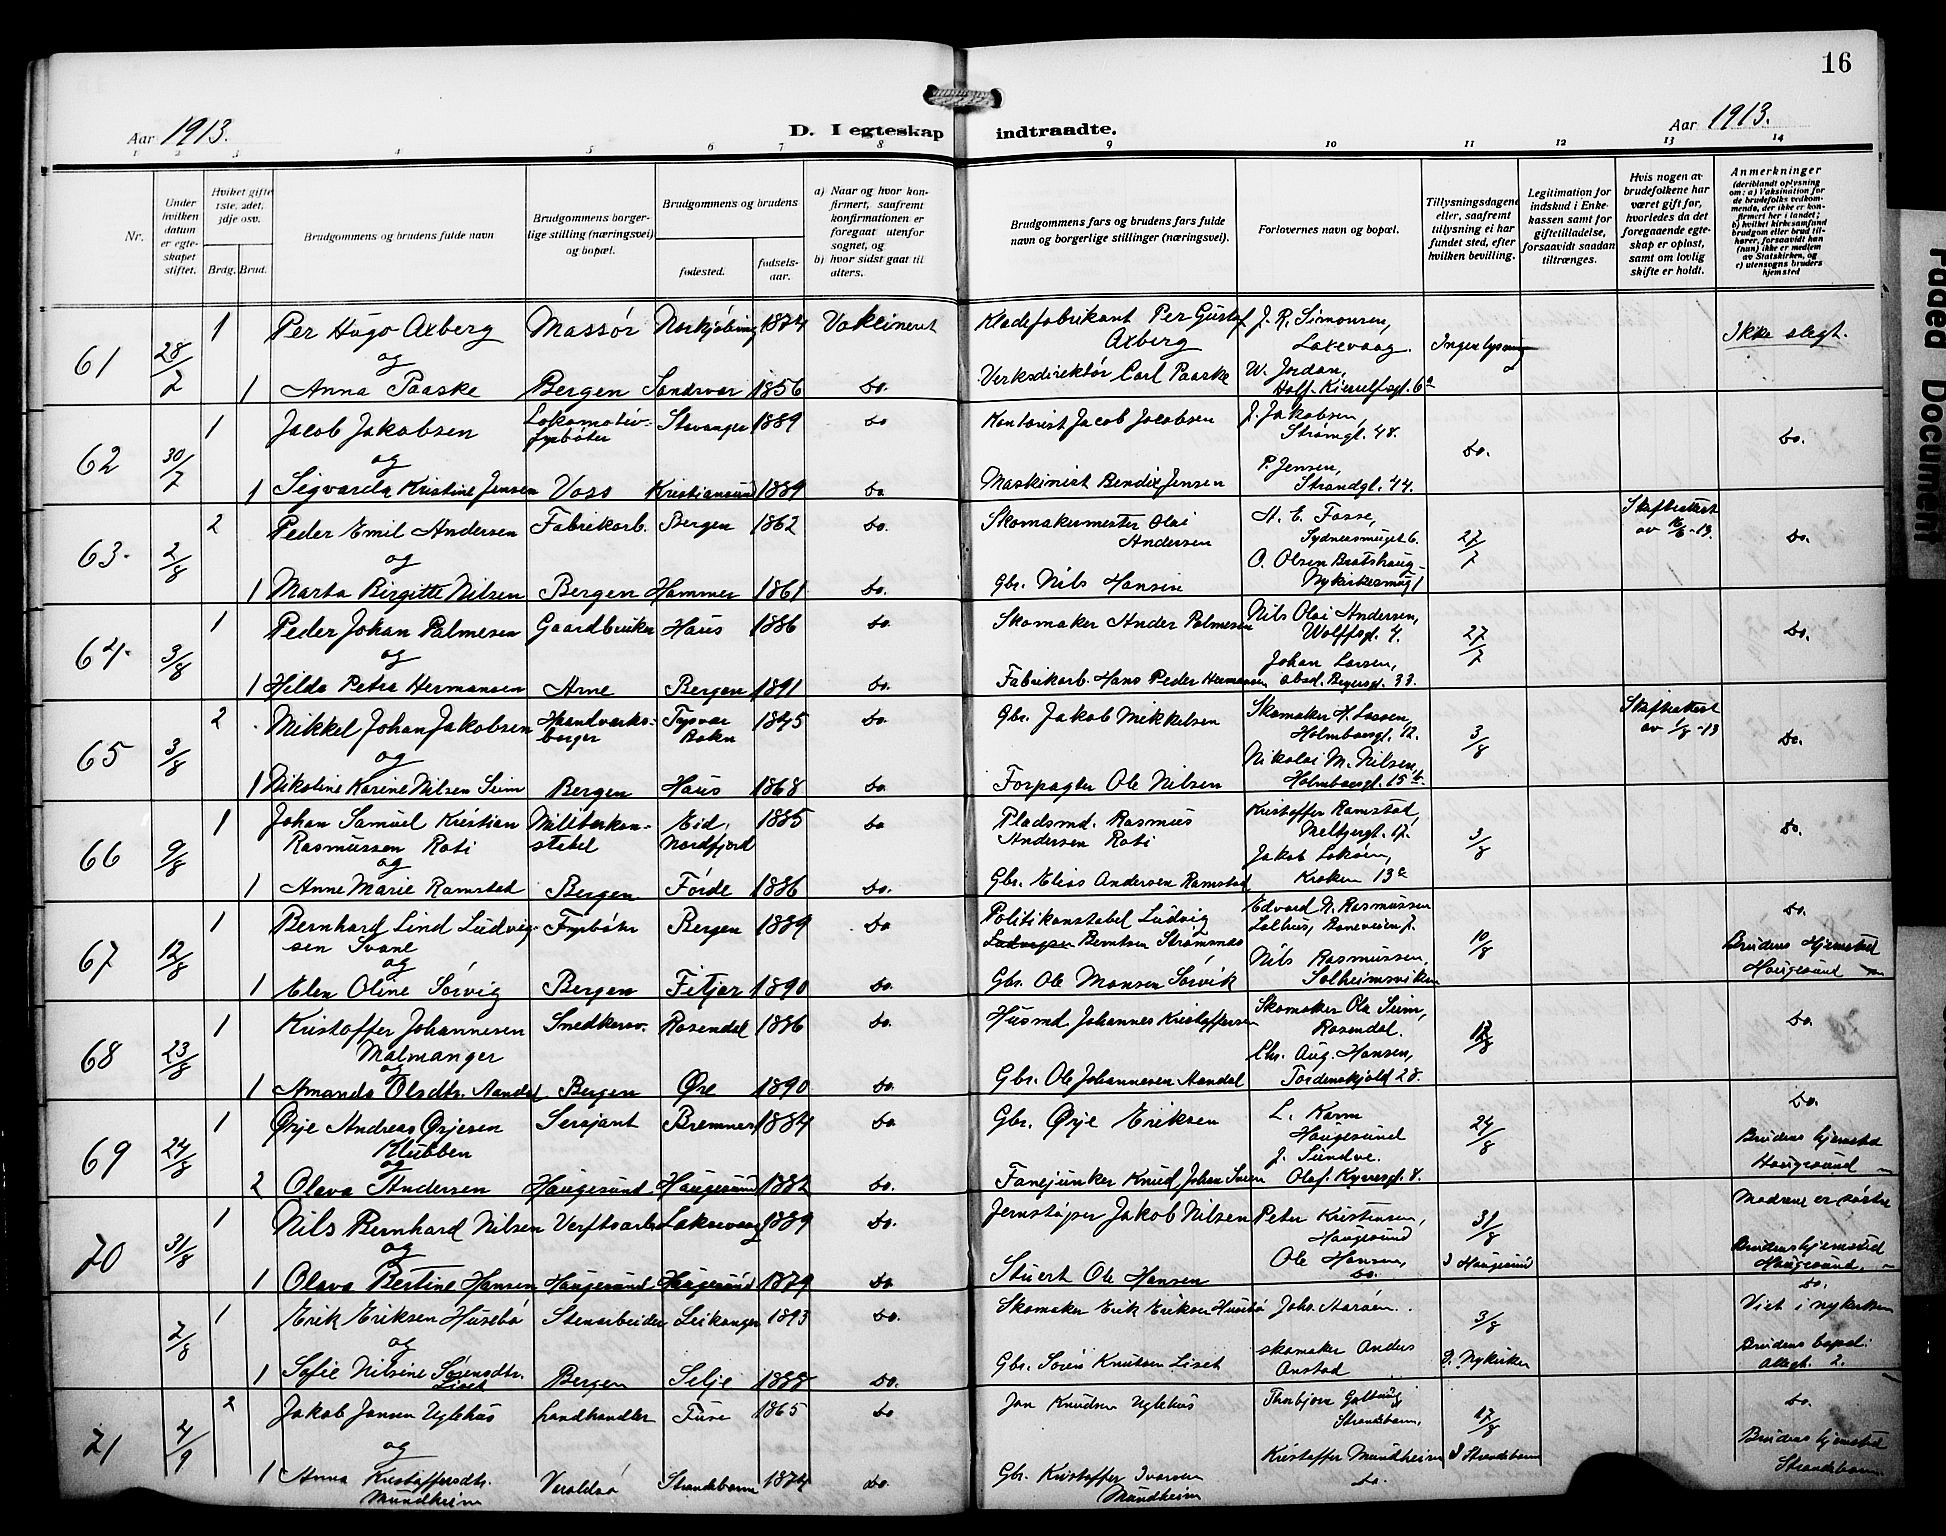 16
Aar 1913.
D. I egteskap indtraadte.
Aar 1913.
1 2 3 4 5 6 7 8 9 10 11 12 13 14
Nr.
Under hvilken datum er egteskapet stiftet.
Hviket gifte 1ste, 2det, 3dje osv.
Brdg. Brud.
Brudgommens og brudens fulde navn
Brudgommens borgerlige stilling (næringsvei) og bopæl.
Brudgommens og brudens
fødested.
fødselsaar.
a) Naar og hvor konfirmert, saafremt konfirmationen er foregaat utenfor sognet, og
b) hvor sidst gaat til alters.
Brudgommens fars og brudens fars fulde navn og borgerlige stillinger (næringsvei).
Forlovernes navn og bopæl.
Tillysningsdagene eller, saafremt tillysning ei har fundet sted, efter hvilken bevilling.
Legitimation for indskud i Enkekassen samt for giftetilladelse, forsaavidt saadan tiltrænges.
Hvis nogen av brudefolkene har været gift før, hvorledes da det foregaaende egteskap er opløst, samt om lovlig skifte er holdt.
Anmerkninger
(deriblandt oplysning om: a) Vaksination for de brudefolks vedkommende, der ikke er konfirmert her i landet; b) hvilket kirkesamfund brudgom eller brud tilhører, forsaavidt han (hun) ikke er medlem av Statskirken, og c) utensogns bruders hjemsted
61 28/7 1 Per Hugo Axberg Massör Norkjöbing 1874 Vakcineret Klädefabrikant Per Gustaf Axberg J. R. Simonsen, Laxevaag. Ingen lysning Ikke slegt.
og
1 Anna Paaske Bergen Sandsvær 1856 do. Verksdirektör Carl Paaske W. Jordan, 6a
62 30/7 1 Jacob Jakobsen Lokomotivfyrböter Stavanger 1889 do Kontorist Jacob Jacobsen J. Jakobsen, Strømgt. 48. do. do.
og
1 Sigvarda Kristine Jensen Voss Kristiansund 1889 do. Maskinist Bendix Jensen P. Jensen, Strandgt. 44.
63. 2/8 2 Peder Emil Andersen Fabrikarb. Bergen 1862 do. Skomakermester Olai Andersen A. E. Fosse, Sydnessmuget 6. 27/7 Skifteattest av -13. do.
og
1 Marta Birgitte Nilsen Bergen Hammer 1861 do. Gbr. Nils Hansen O. Olsen Bratshaug Nykirkesmug 1
64. 3/8 1 Peder Johan Palmesen Gaardbruker Haus 1886 do. Skomaker Ander Palmesen Nils Olai Andersen, Wolffsgt. 4. 27/7 do.
og
1 Hilda Petra Hermansen Arne Bergen 1891 do. Fabrikarb. Hans Peder Hermansen Johan Larsen, Absal. Beyersgt. 33.
65 3/8 2 Mikkel Johan Jakobsen Haandverksborger Tysvær Bokn 1845 do. Gbr. Jakob Mikkelsen Skomaker H. Lassen, Holmboesgt. 12. 3/8 Skifteattest av 1/8 -13 do.
og
1 Nikoline Karine Nilsen Seim Bergen Haus 1868 do. Forpagter Ole Nilsen Nikolai M. Nilsen, Holmboesgt. 15 b.
66 9/8 1 Johan Samuel Kristian Rasmussen Roti Militærkonstabel Eid, Nordfjord 1885 do Pladsmd. Rasmus Andersen Roti Kristoffer Ramstad, Meltzersgt. 17. 3/8 do.
og
1 Anne Marie Ramstad Bergen Förde 1886 do. Gbr. Elias Andersen Ramstad Jakob Loköen, Kroken 13a
67 12/8 1 Bernhard Lind Ludvigsen Svane Fyrböter Bergen 1889 do Politikonstabel Ludvig Berntsen Strømsnæs Edvard N. Rasmussen Solhus, Boneveien 7. 10/8 do.
og
1 Elen Oline Sörvig Bergen Fitjar 1890 do. Gbr. Ole Monsen Sörvik Nils Rasmussen, Solheimsviken Brudens Hjemsted Haugesund
68 23/8 1 Kristoffer Johannesen Malmanger Snedkersv. Rosendal 1886 do. Husmd Johannes Kristoffersen Skomaker Ola Seim, Rosendal. do.
og
1 Amanda Olsdtr. Aandal Bergen Øre 1890 do. Gbr. Ole Johannesen Aandal Chr. Aug. Hansen, Tordenskjold 28.
69 24/8 1 Ørje Andreas Ørjesen Klubben Sersjant Bremnes 1884 do Gbr. Ørje Eriksen L. Karm Haugesund 24/8 do.
og
2 Olava Andersen Haugesund. Haugesund 1882 do. Fanejunker Knud Johan J. Sundve. Olaf Kyrresgt. 8. Brudens hjemsted Haugesund
70 31/8 1 Nils Bernhard Nilsen Verftsarb. Laksevaag 1889 do. Jernstöper Jakob Nilsen Peter Kristensen, Haugesund 31/8 Mödrene er söstre
og
1 Olava Bertine Hansen Haugesund. Haugesund 1879 do Stuert Ole Hansen Ole Hansen, do. I Haugesund Brudens hjemsted Haugesund.
7/8 1 Erik Eriksen Husebö Stenarbeider Leikanger 1893 do. Skomaker Erik Eriksen Husebö Johs. 3/8 do. Viet i nykirken
og
1 Sofie Nilsine Sörensdtr. Liset Bergen Selje 1888 do. Gbr. Sören Knutsen Liset skomaker Anders Aastad I. Nykirken Brudens bopæl: Allegt. 2.
71 4/9 2 Jakob Jonsen Uglehus Landhandler Fuse 1865 do Jon Knudsen Uglehus Thorbjørn Galtung Strandebarm, 17/8 do.
og
1 Anna Kristoffersdtr. Mundheim Varaldsö Strandebarm 1874 do. Gbr. Kristoffer Ivarsen Mundheim Kristoffer Mundheim do. I Strandebarm Brudens hjemsted Strandebarm
Faded Document